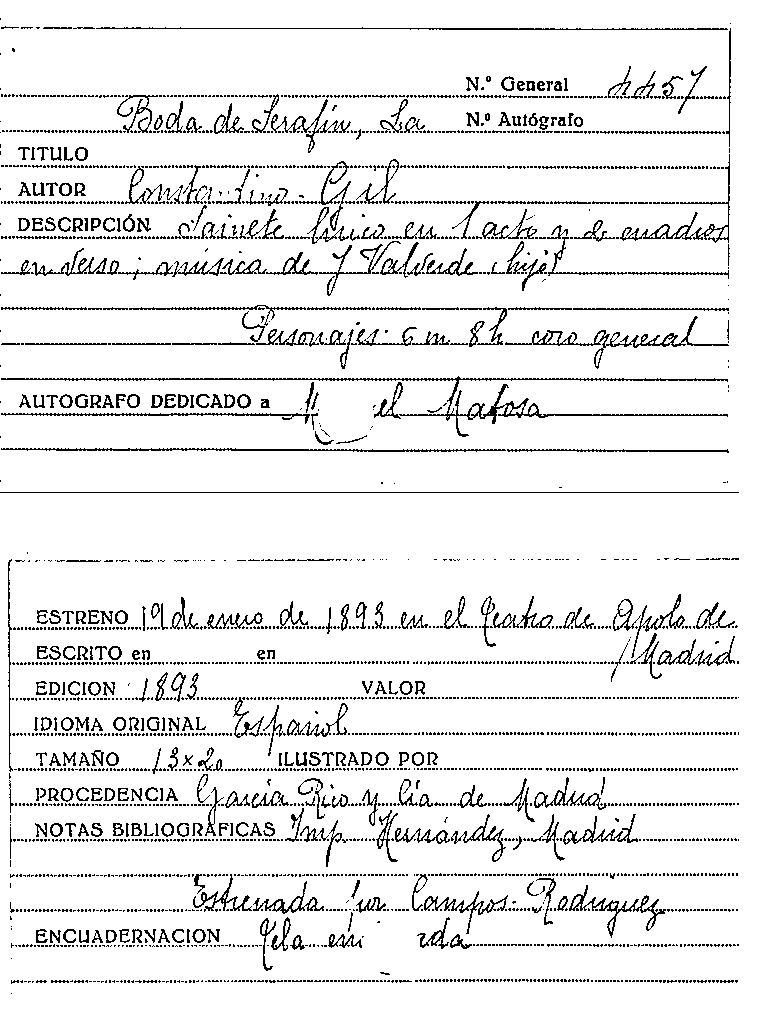 N.º General 4457
Boda de Serafín, La N.º Autógrafo
TITULO
AUTOR Constantino Gil
DESCRIPCIÓN Sainete lírico en 1 acto y 2 cuadros
en verso; música de J Valverde (hijo)
Personajes: 6 m 8 h coro general
AUTOGRAFO DEDICADO a Matosa
ESTRENO 19 de enero de 1893 en el Teatro de Apolo de
Madrid
ESCRITO en en
EDICION 1893 VALOR
IDIOMA ORIGINAL Español
TAMAÑO 13x20 ILUSTRADO POR
PROCEDENCIA García Rico y Cía de Madrid
NOTAS BIBLIOGRÁFICAS Imp Hernández, Madrid
Estrenada por Campos-Rodríguez
ENCUADERNACION Tela